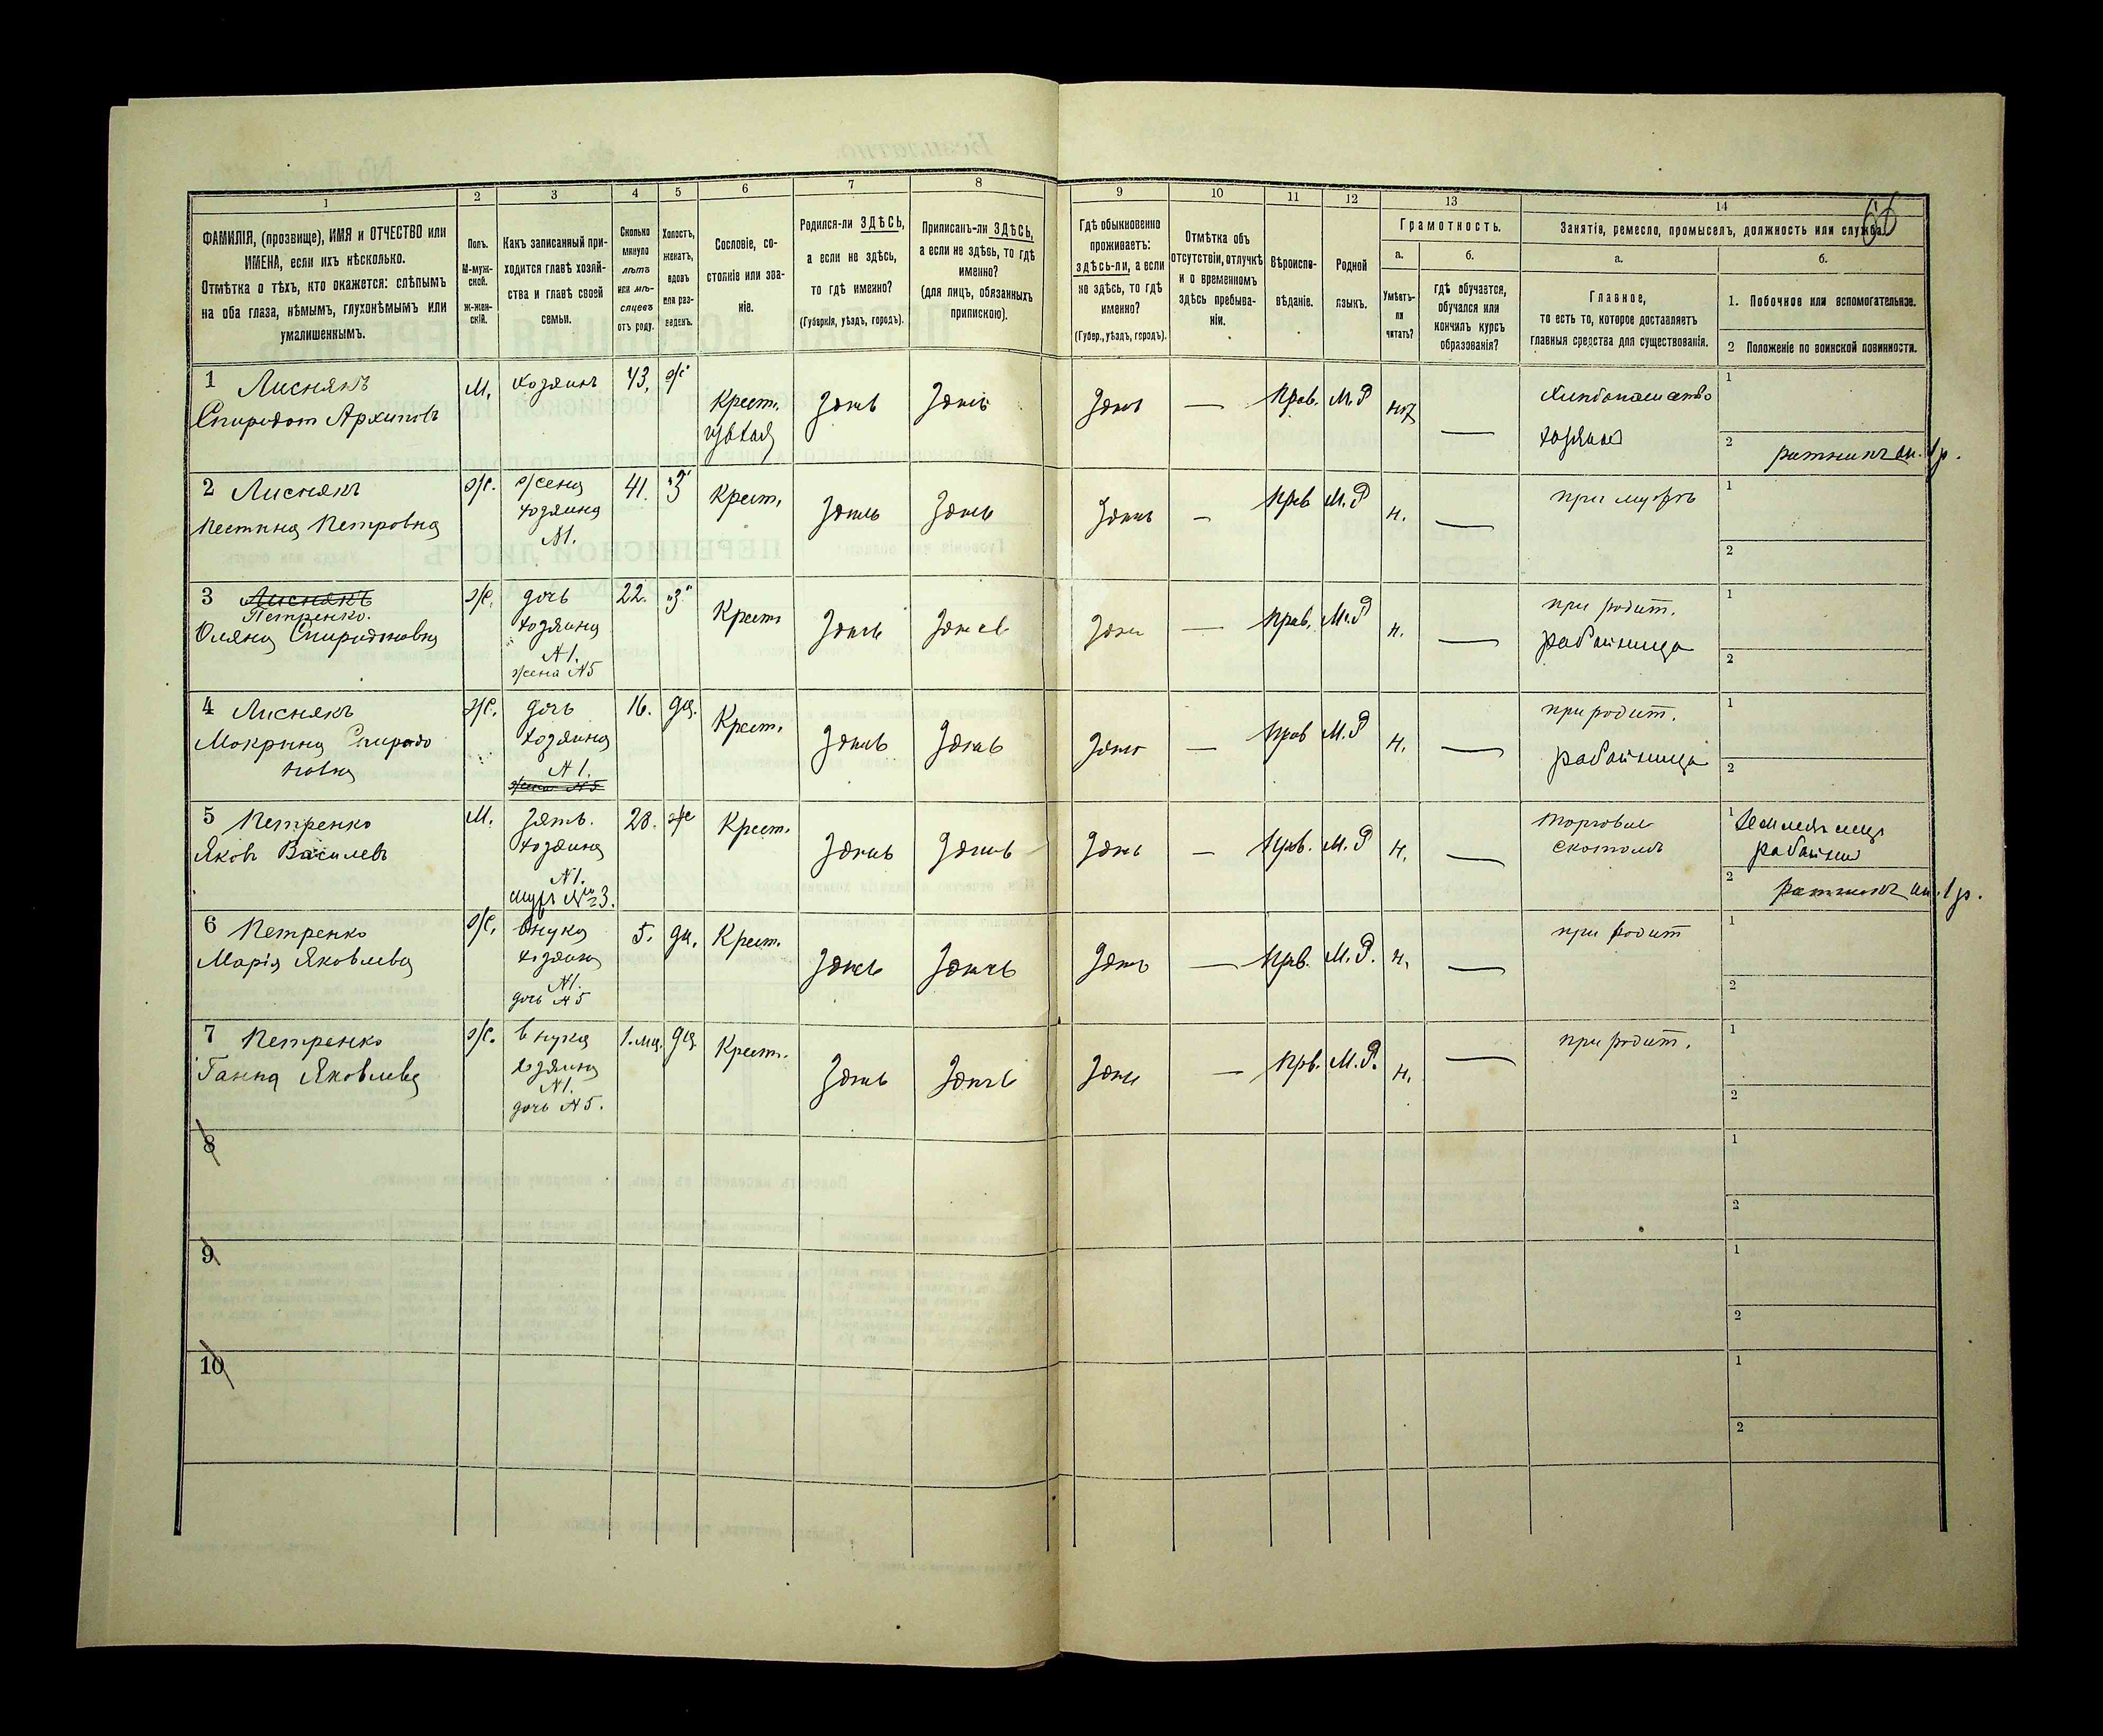 66
1 2 3 4 5 6 7 8 9 10 11 12 13 14
ФАМИЛІЯ, (прозвище), ИМЯ и ОТЧЕСТВО или
ИМЕНА, если ихъ нѣсколько.
Отмѣтка о тѣхъ, кто окажется: слѣпымъ
на оба глаза, нѣмымъ, глухонѣмымъ или
умалишеннымъ.
Полъ.
М-муж-
ской.
Ж-жен-
скій.
Какъ записанный при-
ходится главѣ хозяй-
ства и главѣ своей
семьи.
Сколько
минуло
лѣтъ
или мѣ-
сяцевъ
отъ роду.
Холостъ,
женатъ,
вдовъ
или раз-
веденъ.
Сословіе, со-
стояніе или зва-
ніе.
Родился-ли ЗДѢСЬ,
а если не здѣсь,
то гдѣ именно?
(Губернія, уѣздъ, городъ).
Приписанъ-ли ЗДѢСЬ,
а если не здѣсь, то гдѣ
именно?
(для лицъ, обязанныхъ
припискою).
Гдѣ обыкновенно
проживаетъ:
здѣсь-ли, а если
не здѣсь, то гдѣ
именно?
(Губер., уѣздъ, городъ).
Отмѣтка объ
отсутствіи, отлучкѣ
и о временномъ
здѣсь пребыва-
ніи.
Вѣроиспо-
вѣданіе.
Родной
языкъ.
Грамотность.
а.
Умѣетъ-
ли
читать?
б.
гдѣ обучается,
обучался или
кончилъ курсъ
образованія?
Занятія, ремесло, промыселъ, должность или служба.
а.
Главное,
то есть то, которое доставляетъ
главныя средства для существованія.
б.
1. Побочное или вспомогательное.
2 Положеніе по воинской повинности.
1 Лиснякъ
Спиридот Архиповъ
М.
хозяинъ
43.
ж
Крест.
Здѣсь Здѣсь Здѣсь — Прав. М.Р —
Хлебопашество
хозяинъ
1
2 ратникъ оп. 1 р.
2 Лиснякъ
Пестина Петровна
ж.
жена
хозяина
№1.
41. "З"
Крест.
Здѣсь Здѣсь Здѣсь — Прав М.Р н. —
при мужѣ
1
2
3 Лиснякъ
Петренко.
Оляна Спиридоновна
ж.
дочь
хозяина
№1.
жена №5
22. "З"
Крест
Здѣсь Здѣсь Здѣсь — Прав. М.Р н. —
при родит.
работница
1
2
4 Лиснякъ
Мокрына Спиридо
новна
ж.
дочь
хозяина
№1.
жена №5
16. дѣ.
Крест.
Здѣсь Здѣсь Здѣсь — Прав М.Р н. —
при родит.
работница
1
2
5 Петренко
Яковъ Василевъ
М.
зять.
хозяина
№1.
мужъ №3.
28. ж
Крест.
Здѣсь Здѣсь Здѣсь — Прав. М.Р н. —
торговля
скотомъ
1
работник
2 ратникъ оп. 1 р.
6 Петренко
Марія Яковлева
ж.
внука
хозяина
№1.
дочь №5
5. дѣ.
Крест.
Здѣсь Здѣсь Здѣсь — Прав. М.Р. н. —
при родит
1
2
7 Петренко
Ганна Яковлева
ж.
внука
хозяина
№1.
дочь №5.
1. мц. дѣ
Крест.
Здѣсь Здѣсь Здѣсь — Прв. М.Р. н. —
при родит.
1
2
8
1
2
9
1
2
10
1
2